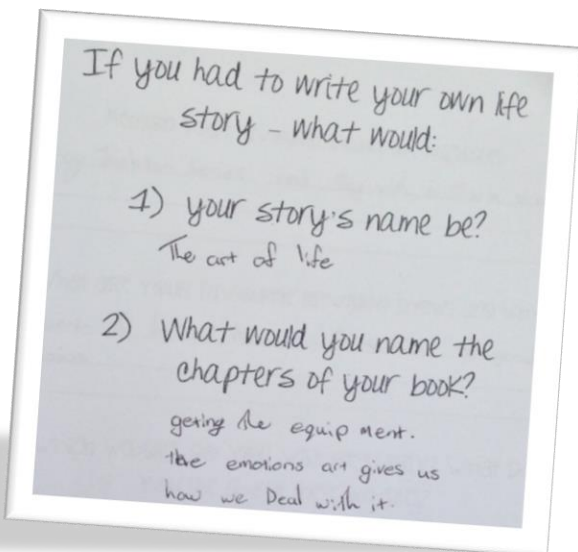 If you had to write your own life
story - what would:
1) your story's name be?
The art of life
2) What would you name the
chapters of your book?
geting the equipment.
the emotions art gives us
how we Deal with it.